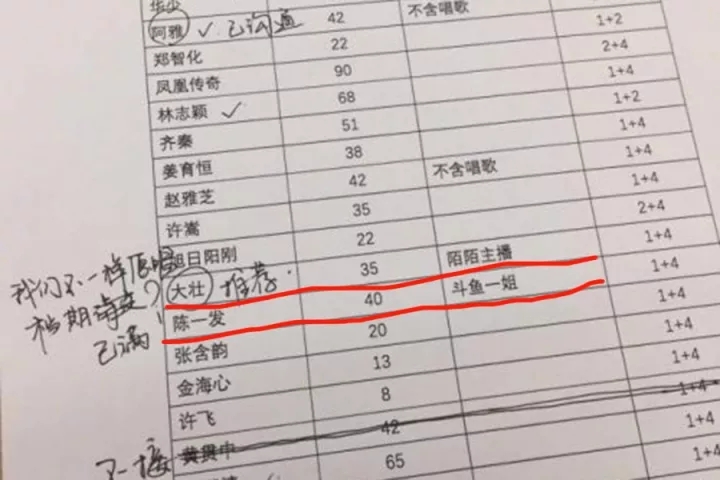 阿雅 ✓ 已沟通 42 不含唱歌 1+2
郑智化 22 2+4
凤凰传奇 90 1+4
林志颖 ✓ 68 1+2
齐秦 51 1+4
姜育恒 38 1+4
赵雅芝 42 不含唱歌 1+4
许嵩 35 2+4
旭日阳刚 22 1+4
大壮 推荐. 35 陌陌主播 1+4
陈一发 40 斗鱼一姐 1+4
张含韵 20 1+4
金海心 13 1+4
许飞 8 1+4
黄贯中 42 1+4
65 1+4
我们不一样
档期
已满
不接